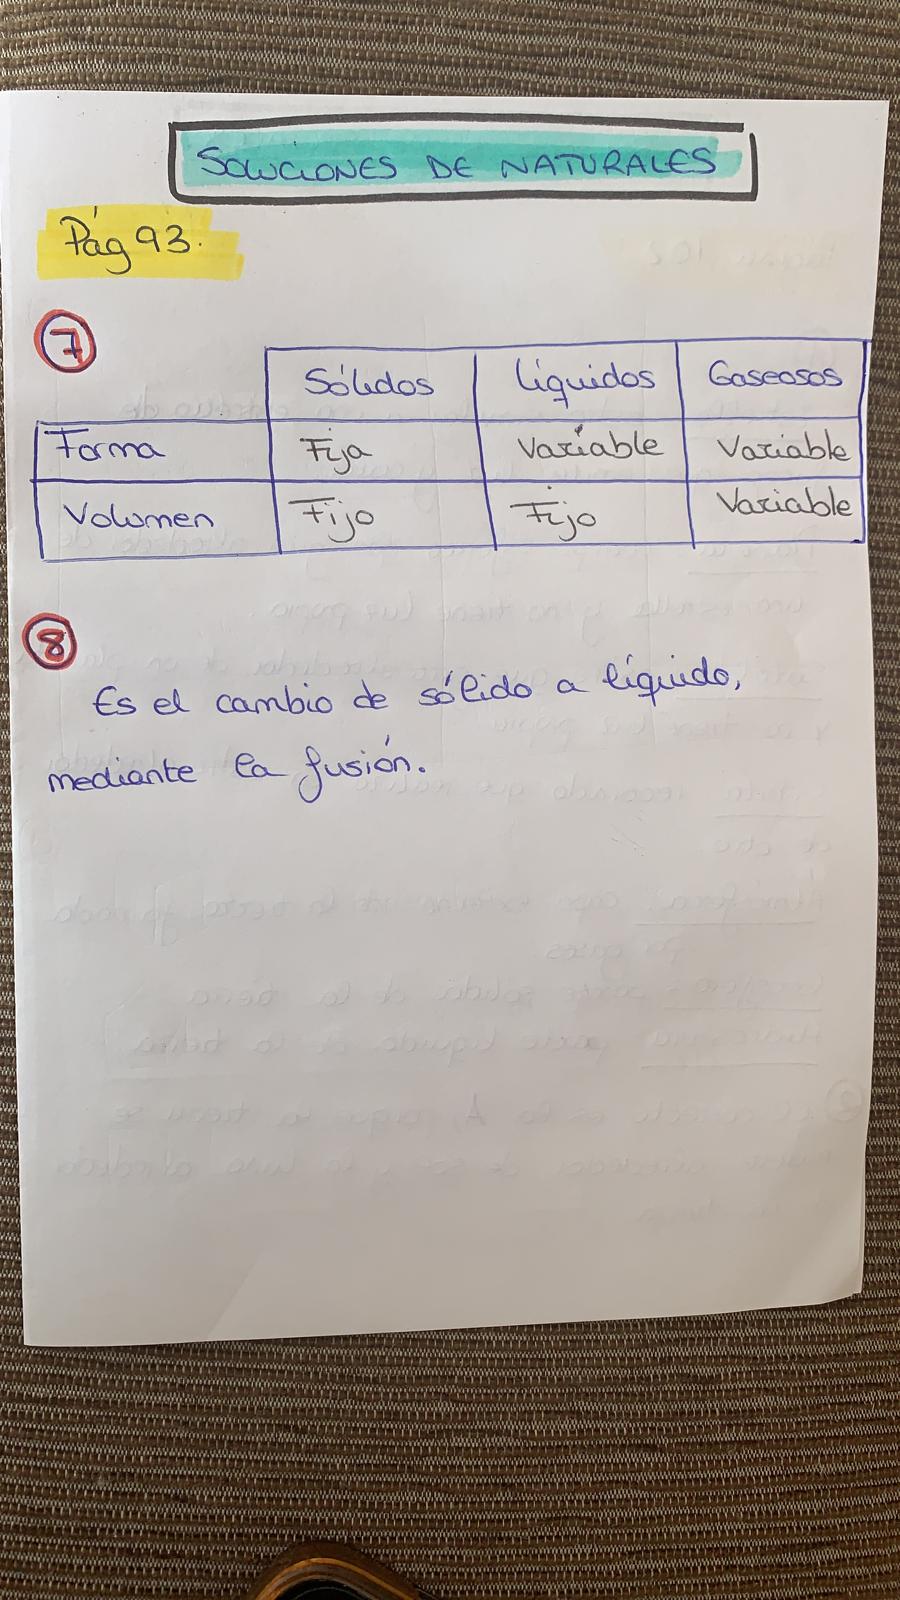 SOLUCIONES DE NATURALES
Pág 93.
7
Sólidos Líquidos Gaseosos
Forma Fija Variable Variable
Volumen Fijo Fijo Variable
8
Es el cambio de sólido a líquido,
mediante la fusión.